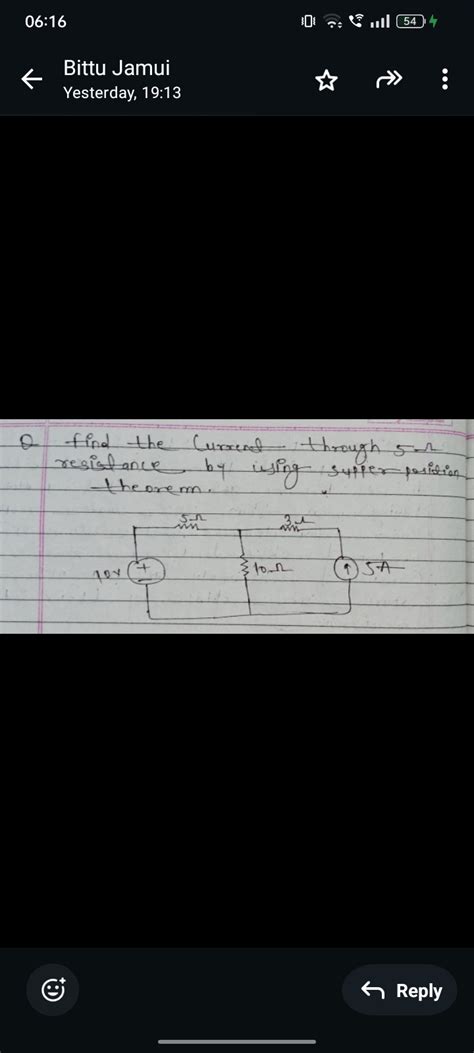 06:16
54
Bittu Jamui
Yesterday, 19:13
Q find the Current through 5Ω
resistance by using supper position
theorem.
5Ω 3Ω
10V 10Ω 5A
Reply